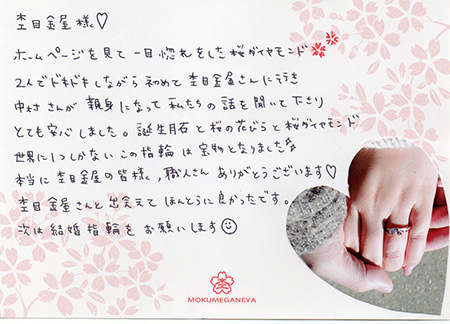 杢目金屋様♡
ホームページを見て一目惚れをした桜ダイヤモンド
2人でドキドキしながら初めて杢目金屋さんに行き
中村さんが親身になって私たちの話を聞いて下さり
とても安心しました。誕生月石と桜の花びらと桜ダイヤモンド
世界に1つしかないこの指輪は宝物となりました
本当に杢目金屋の皆様,職人さんありがとうございます♡
杢目金屋さんと出会えてほんとうに良かったです。
次は結婚指輪をお願いします☺
杢
MOKUMEGANEYA